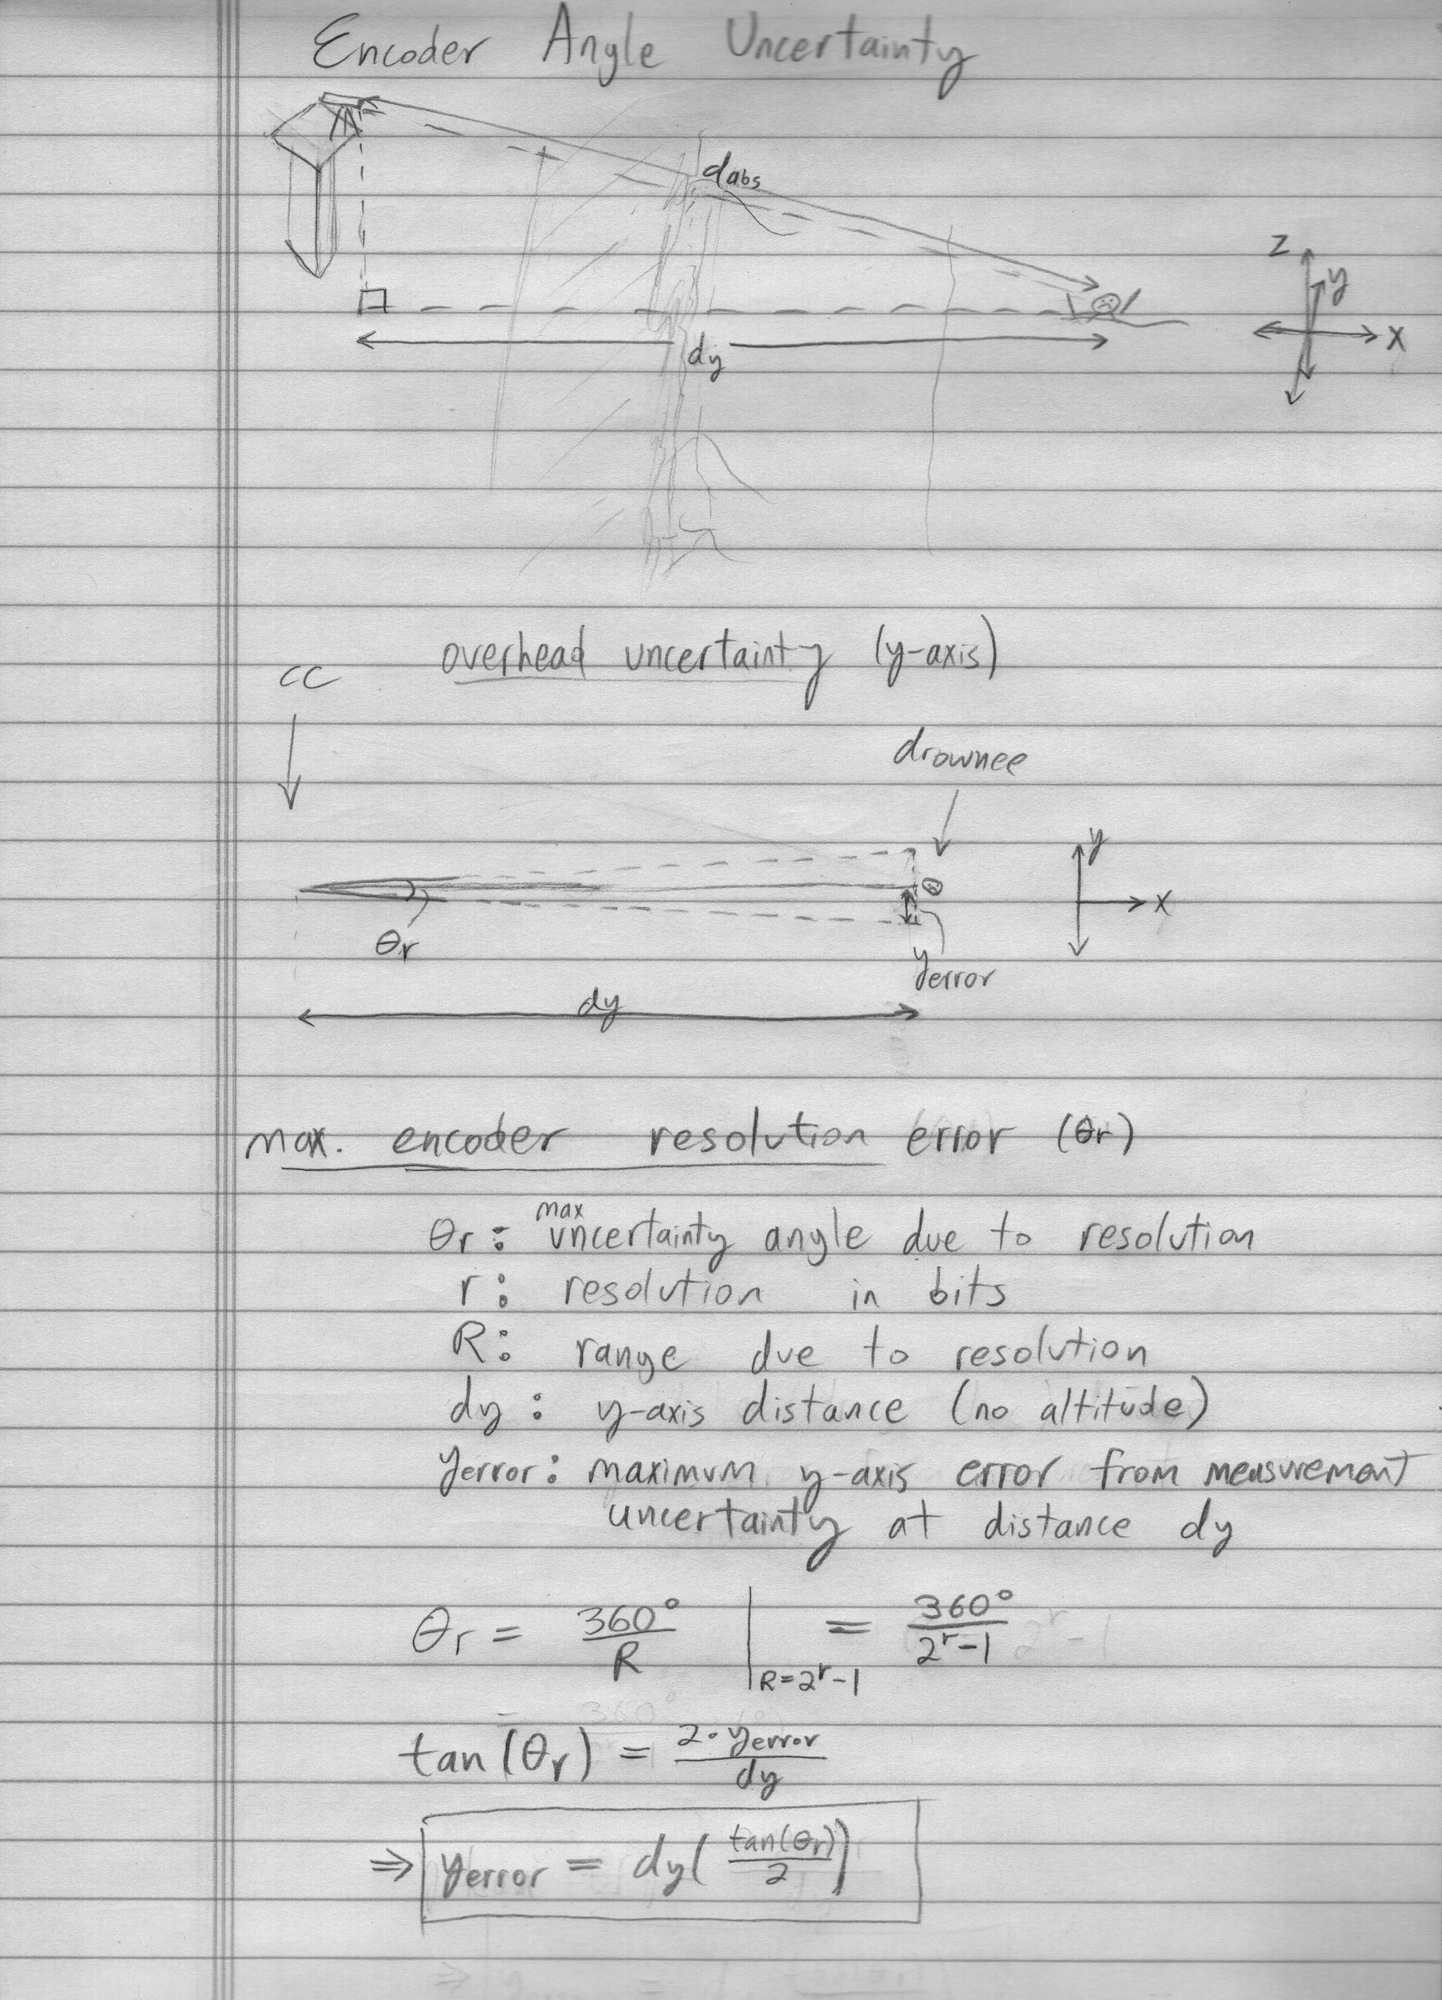 Encoder Angle Uncertainty
dabs
z
y
x
dy
overhead uncertainty (y-axis)
CC
drownee
y
x
θr
yerror
dy
max. encoder resolution error (θr)
θr: max uncertainty angle due to resolution
r: resolution in bits
R: range due to resolution
dy: y-axis distance (no altitude)
yerror: maximum y-axis error from measurement
uncertainty at distance dy
θr = 360°/R |R=2^r-1 = 360°/2^r-1
tan(θr) = 2·yerror/dy
⇒ yerror = dy(tan(θr)/2)